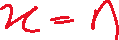 x = n